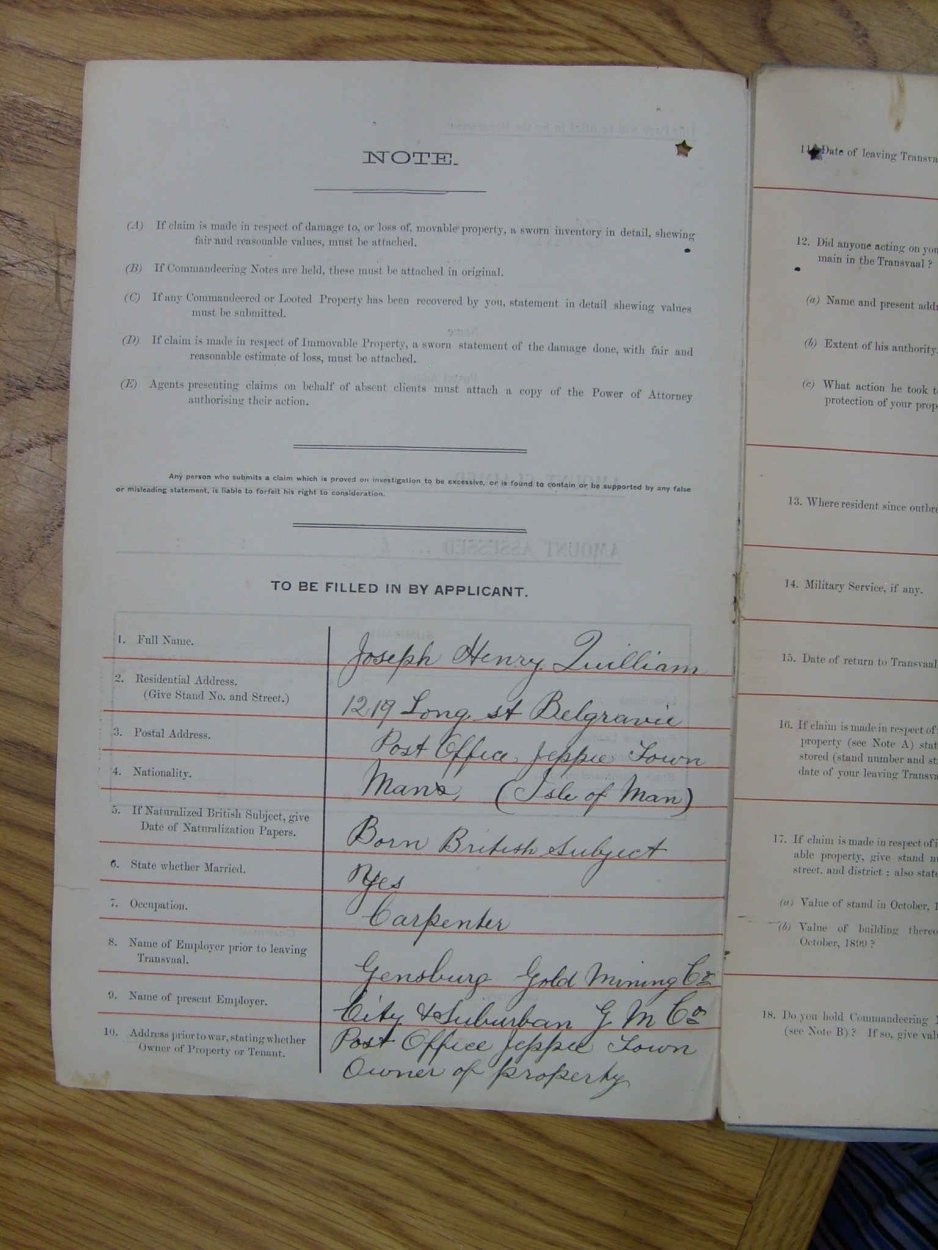 NOTE.
(A) If claim is made in respect of damage to, or loss of, movable property, a sworn inventory in detail, shewing
fair and reasonable values, must be attached.
(B) If Commandeering Notes are held, these must be attached in original.
(C) If any Commandeered or Looted Property has been recovered by you, statement in detail shewing values
must be submitted.
(D) If claim is made in respect of Immovable Property, a sworn statement of the damage done, with fair and
reasonable estimate of loss, must be attached.
(E) Agents presenting claims on behalf of absent clients must attach a copy of the Power of Attorney
authorising their action.
Any person who submits a claim which is proved on investigation to be excessive, or is found to contain or be supported by any false
or misleading statement, is liable to forfeit his right to consideration.
TO BE FILLED IN BY APPLICANT.
1. Full Name.
Joseph Henry Quilliam
2. Residential Address.
(Give Stand No. and Street.)
1219 Long st Belgravie
3. Postal Address.
Post Office Jeppie Town
4. Nationality.
Manx, (Isle of Man)
5. If Naturalized British Subject, give
Date of Naturalization Papers.
Born British Subject
6. State whether Married.
Yes
7. Occupation.
Carpenter
8. Name of Employer prior to leaving
Transvaal.
Gold Mining Co
9. Name of present Employer.
City & Suburban G M Co
10. Address prior to war, stating whether
Owner of Property or Tenant.
Post Office Jeppie Town
Owner of property
11. Date of leaving Transva
12. Did anyone acting on you
main in the Transvaal?
(a) Name and present addr
(b) Extent of his authority.
(c) What action he took t
protection of your prop
13. Where resident since outbre
14. Military Service, if any.
15. Date of return to Transvaal
16. If claim is made in respect of
property (see Note A) stat
stored (stand number and st
date of your leaving Transva
17. If claim is made in respect of i
able property, give stand nu
street, and district; also state
(a) Value of stand in October, 1
(b) Value of building thereo
October, 1899?
18. Do you hold Commandeering
(see Note B)? If so, give val